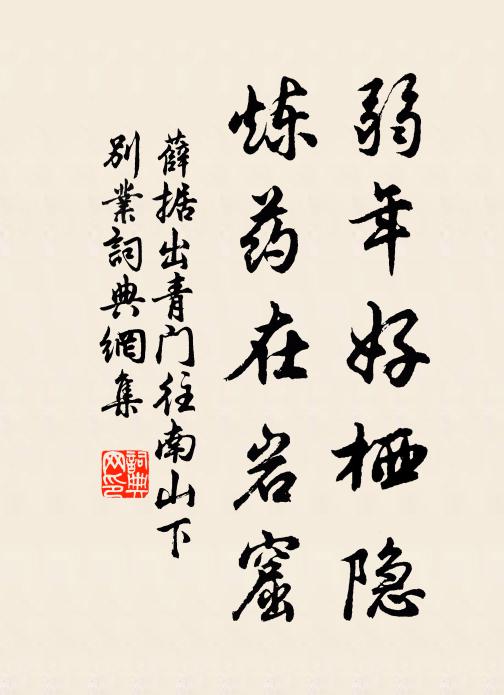 弱年好栖隐
炼药在岩窟
薛据出青门往南山下
别业詞典網集
詞典
网印